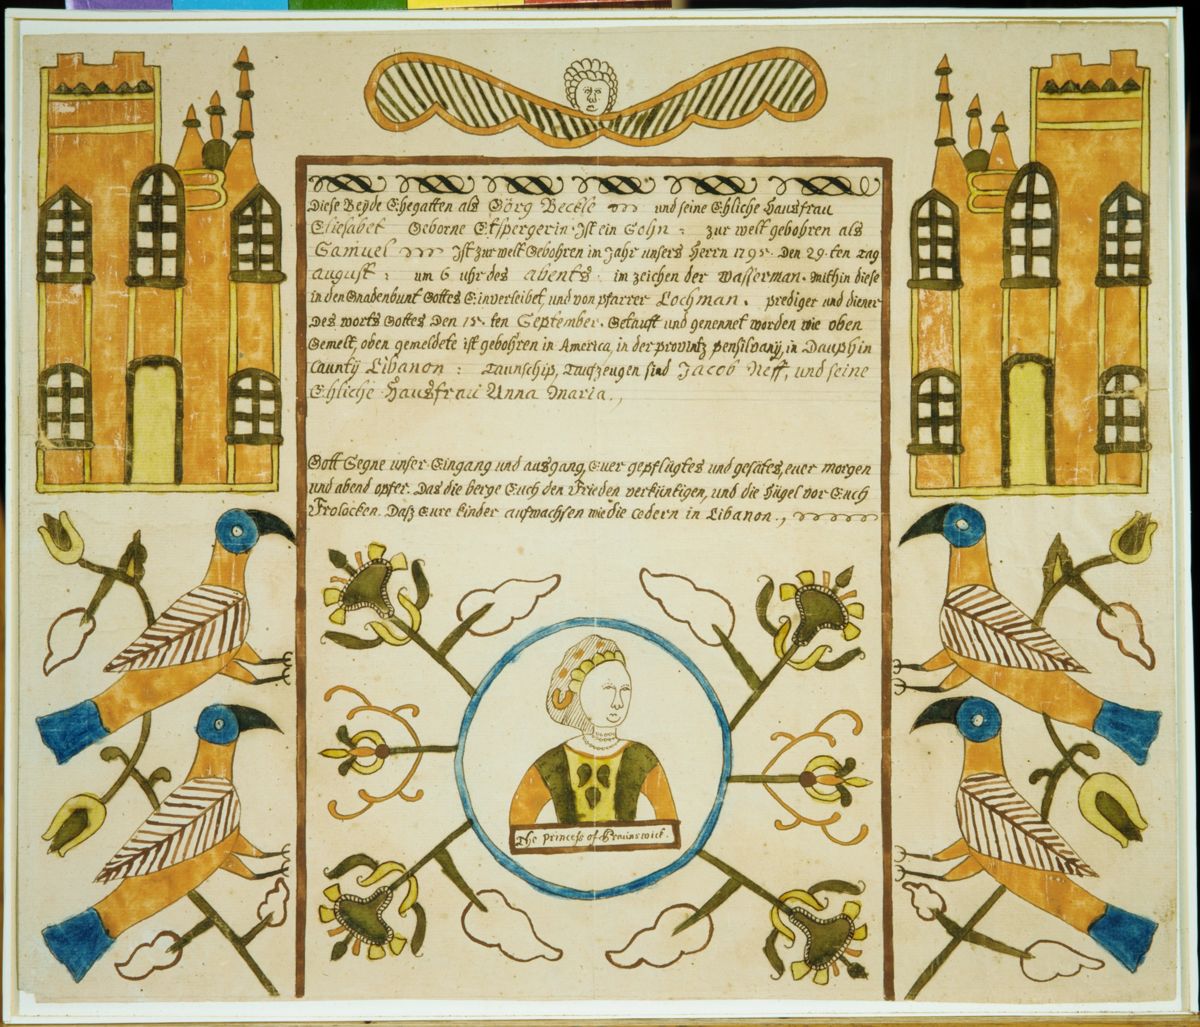 Diese Beyde Ehegatten als Görg Beckle und seine Ehliche Hausfrau
Eliesabet Geborne Etspergerin. Ist ein Sohn : zur welt gebohren als
Samuel Ist zur welt Gebohren im Jahr unsers Herrn 1795. Den 29.ten tag
august : um 6 uhr des abents : im zeichen der wasserman. mithin diese
in den Gnadenbunt Gottes Einverleibet, und von pfarrer Lochman. prediger und diener
Des worts Gottes Den 15.ten September. Getauft und genennet worden wie oben
Gemelt, oben gemeldete ist gebohren in America, in der provintz pensilvanÿ, in Dauphin
Cauntÿ Libanon : Taunschip, Taufzeugen sind Jacob Neff, und seine
Ehliche Hausfrau Anna Maria.,
Gott Segne unser Eingang und ausgang, Euer gepflügtes und gesätes, euer morgen
und abend opfer. Das die berge Euch den Frieden verküntigen, und die hügel vor Euch
Frolocken. Daß Eure kinder aufwachsen wie die cedern in Libanon.,
The princess of Braunswick.